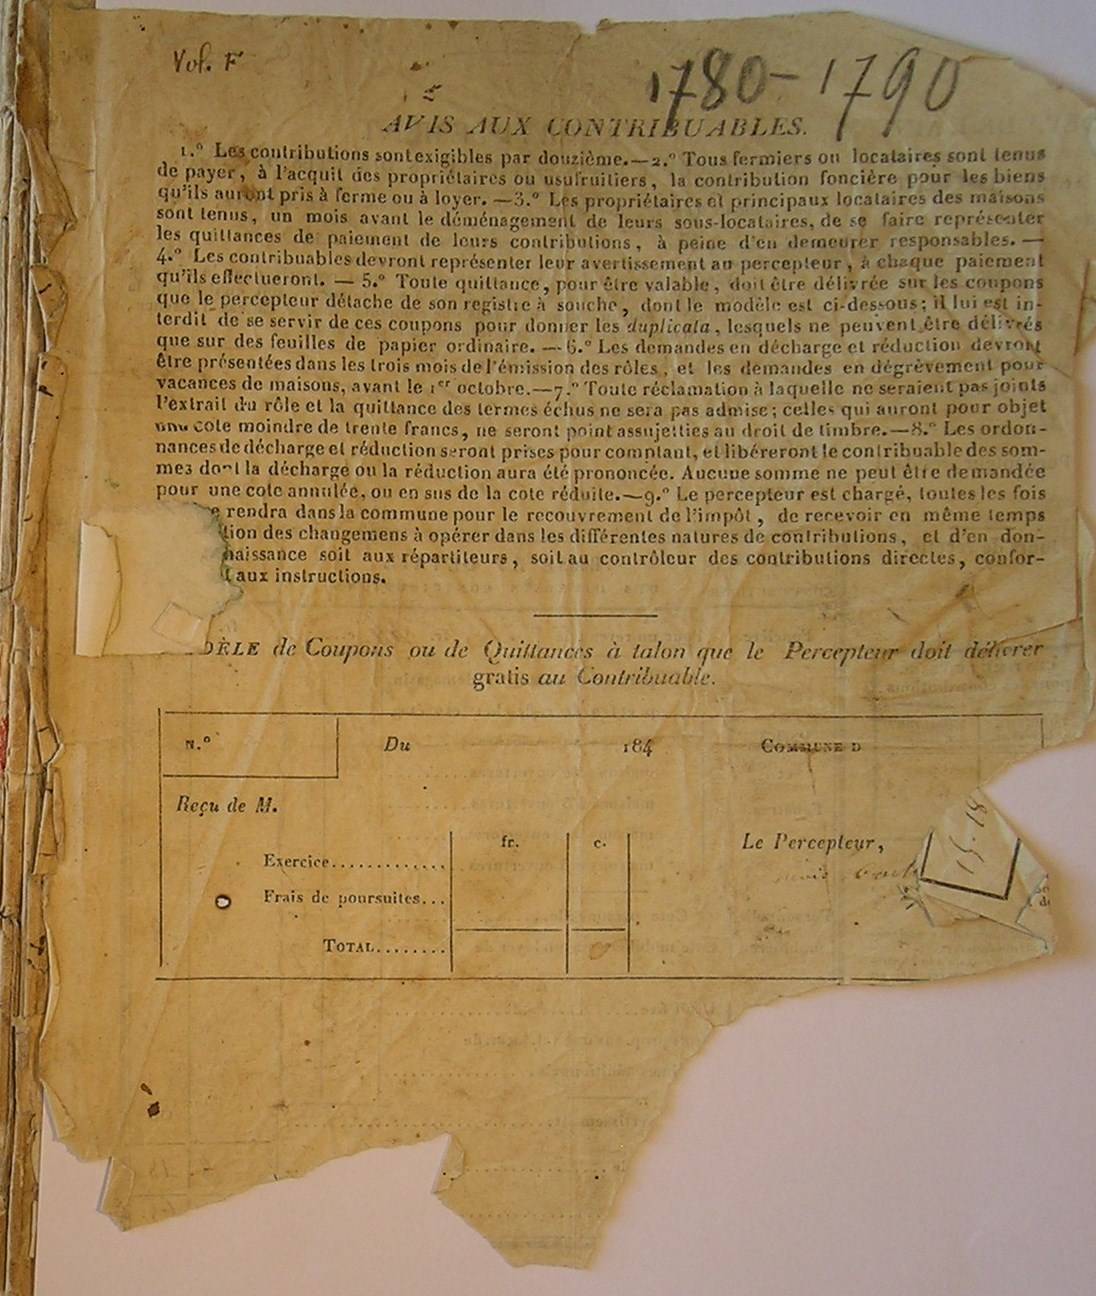 Vol. F
1780-1790
AVIS AUX CONTRIBUABLES.
1.º Les contributions sont exigibles par douzième.—2.º Tous fermiers ou locataires sont tenus
de payer, à l'acquit des propriétaires ou usufruitiers, la contribution foncière pour les biens
qu'ils auront pris à ferme ou à loyer. —3.º Les propriétaires et principaux locataires des maisons
sont tenus, un mois avant le déménagement de leurs sous-locataires, de se faire représenter
les quittances de paiement de leurs contributions, à peine d'en demeurer responsables. —
4.º Les contribuables devront représenter leur avertissement au percepteur, à chaque paiement
qu'ils effectueront. — 5.º Toute quittance, pour être valable, doit être délivrée sur les coupons
que le percepteur détache de son registre à souche, dont le modèle est ci-dessous; il lui est in-
terdit de se servir de ces coupons pour donner les duplicata, lesquels ne peuvent être délivrés
que sur des feuilles de papier ordinaire. —6.º Les demandes en décharge et réduction devront
être présentées dans les trois mois de l'émission des rôles, et les demandes en dégrèvement pour
vacances de maisons, avant le 1er octobre.—7.º Toute réclamation à laquelle ne seraient pas joints
l'extrait du rôle et la quittance des termes échus ne sera pas admise; celles qui auront pour objet
une cote moindre de trente francs, ne seront point assujetties au droit de timbre.—8.º Les ordon-
nances de décharge et réduction seront prises pour comptant, et libéreront le contribuable des som-
mes dont la décharge ou la réduction aura été prononcée. Aucune somme ne peut être demandée
pour une cote annulée, ou en sus de la cote réduite.—9.º Le percepteur est chargé, toutes les fois
e rendra dans la commune pour le recouvrement de l'impôt, de recevoir en même temps
tion des changemens à opérer dans les différentes natures de contributions, et d'en don-
naissance soit aux répartiteurs, soit au contrôleur des contributions directes, confor-
t aux instructions.
DÈLE de Coupons ou de Quittances à talon que le Percepteur doit délivrer
gratis au Contribuable.
N.º Du 184 COMMUNE D
Reçu de M.
fr. c. Le Percepteur,
Exercice.............
Frais de poursuites...
TOTAL........